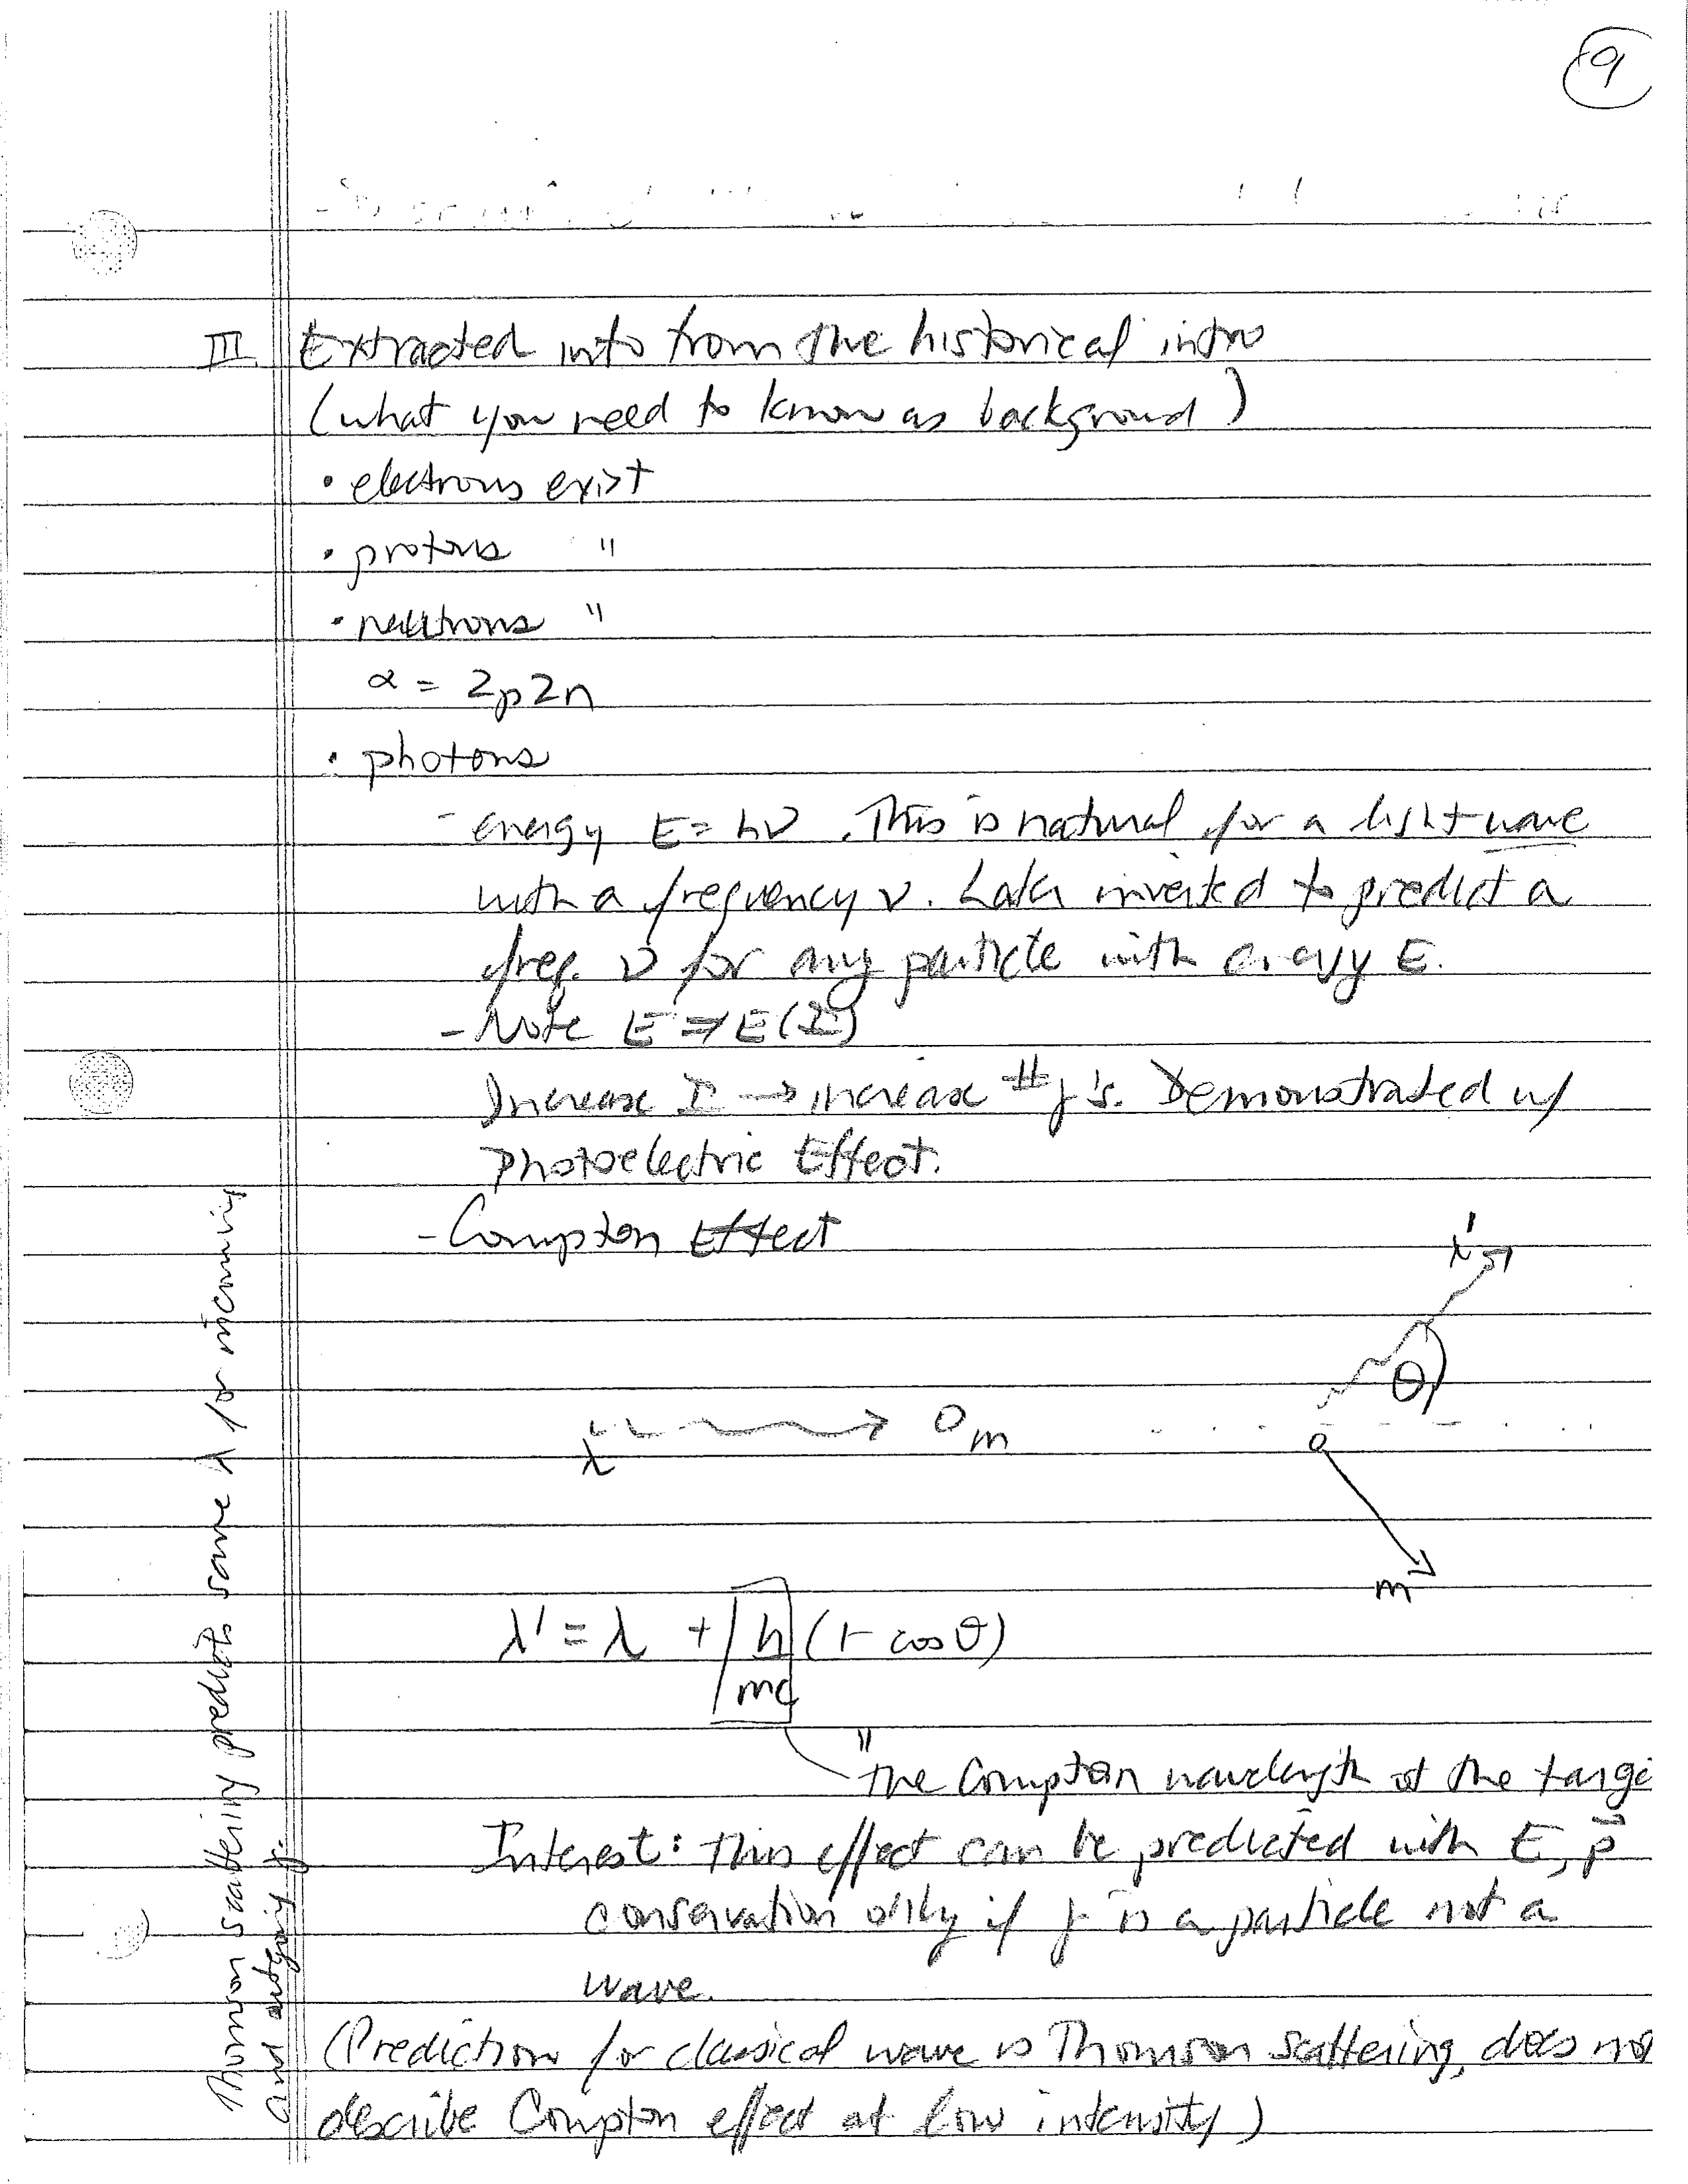 9
III Extracted info from the historical intro
(what you need to know as background)
• electrons exist
• protons "
• neutrons "
α = 2p2n
• photons
- energy E = hν. This is natural for a light wave
with a frequency ν. Later inverted to predict a
freq. ν for any particle with energy E.
- Note E ≠ E(I)
Increase I → increase # γ's. Demonstrated w/
Photoelectric Effect.
- Compton Effect
λ'
θ
λ
m
m
λ' = λ + h/mc (1 - cos θ)
"the Compton wavelength of the targe
Interest: This effect can be predicted with E, p⃗
conservation only if γ is a particle not a
wave.
(Prediction for classical wave is Thomson scattering, does no
describe Compton effect at low intensity)
Thomson scattering predicts same λ for incoming
and outgoing γ.